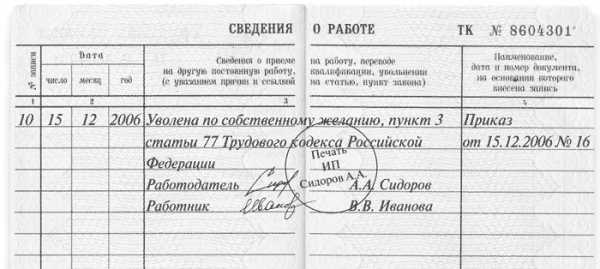 СВЕДЕНИЯ О РАБОТЕ ТК № 8604301
№ записи
Дата
число месяц год
Сведения о приеме на работу, переводе
на другую постоянную работу, квалификации, увольнении
(с указанием причин и ссылкой на статью, пункт закона)
Наименование,
дата и номер документа,
на основании которого
внесена запись
1 2 3 4
10 15 12 2006 Уволена по собственному желанию, пункт 3 Приказ
статьи 77 Трудового кодекса Российской от 15.12.2006 № 16
Федерации
Печать
ИП
Сидоров А.А.
Работодатель А.А. Сидоров
Работник Иванов В.В. Иванова